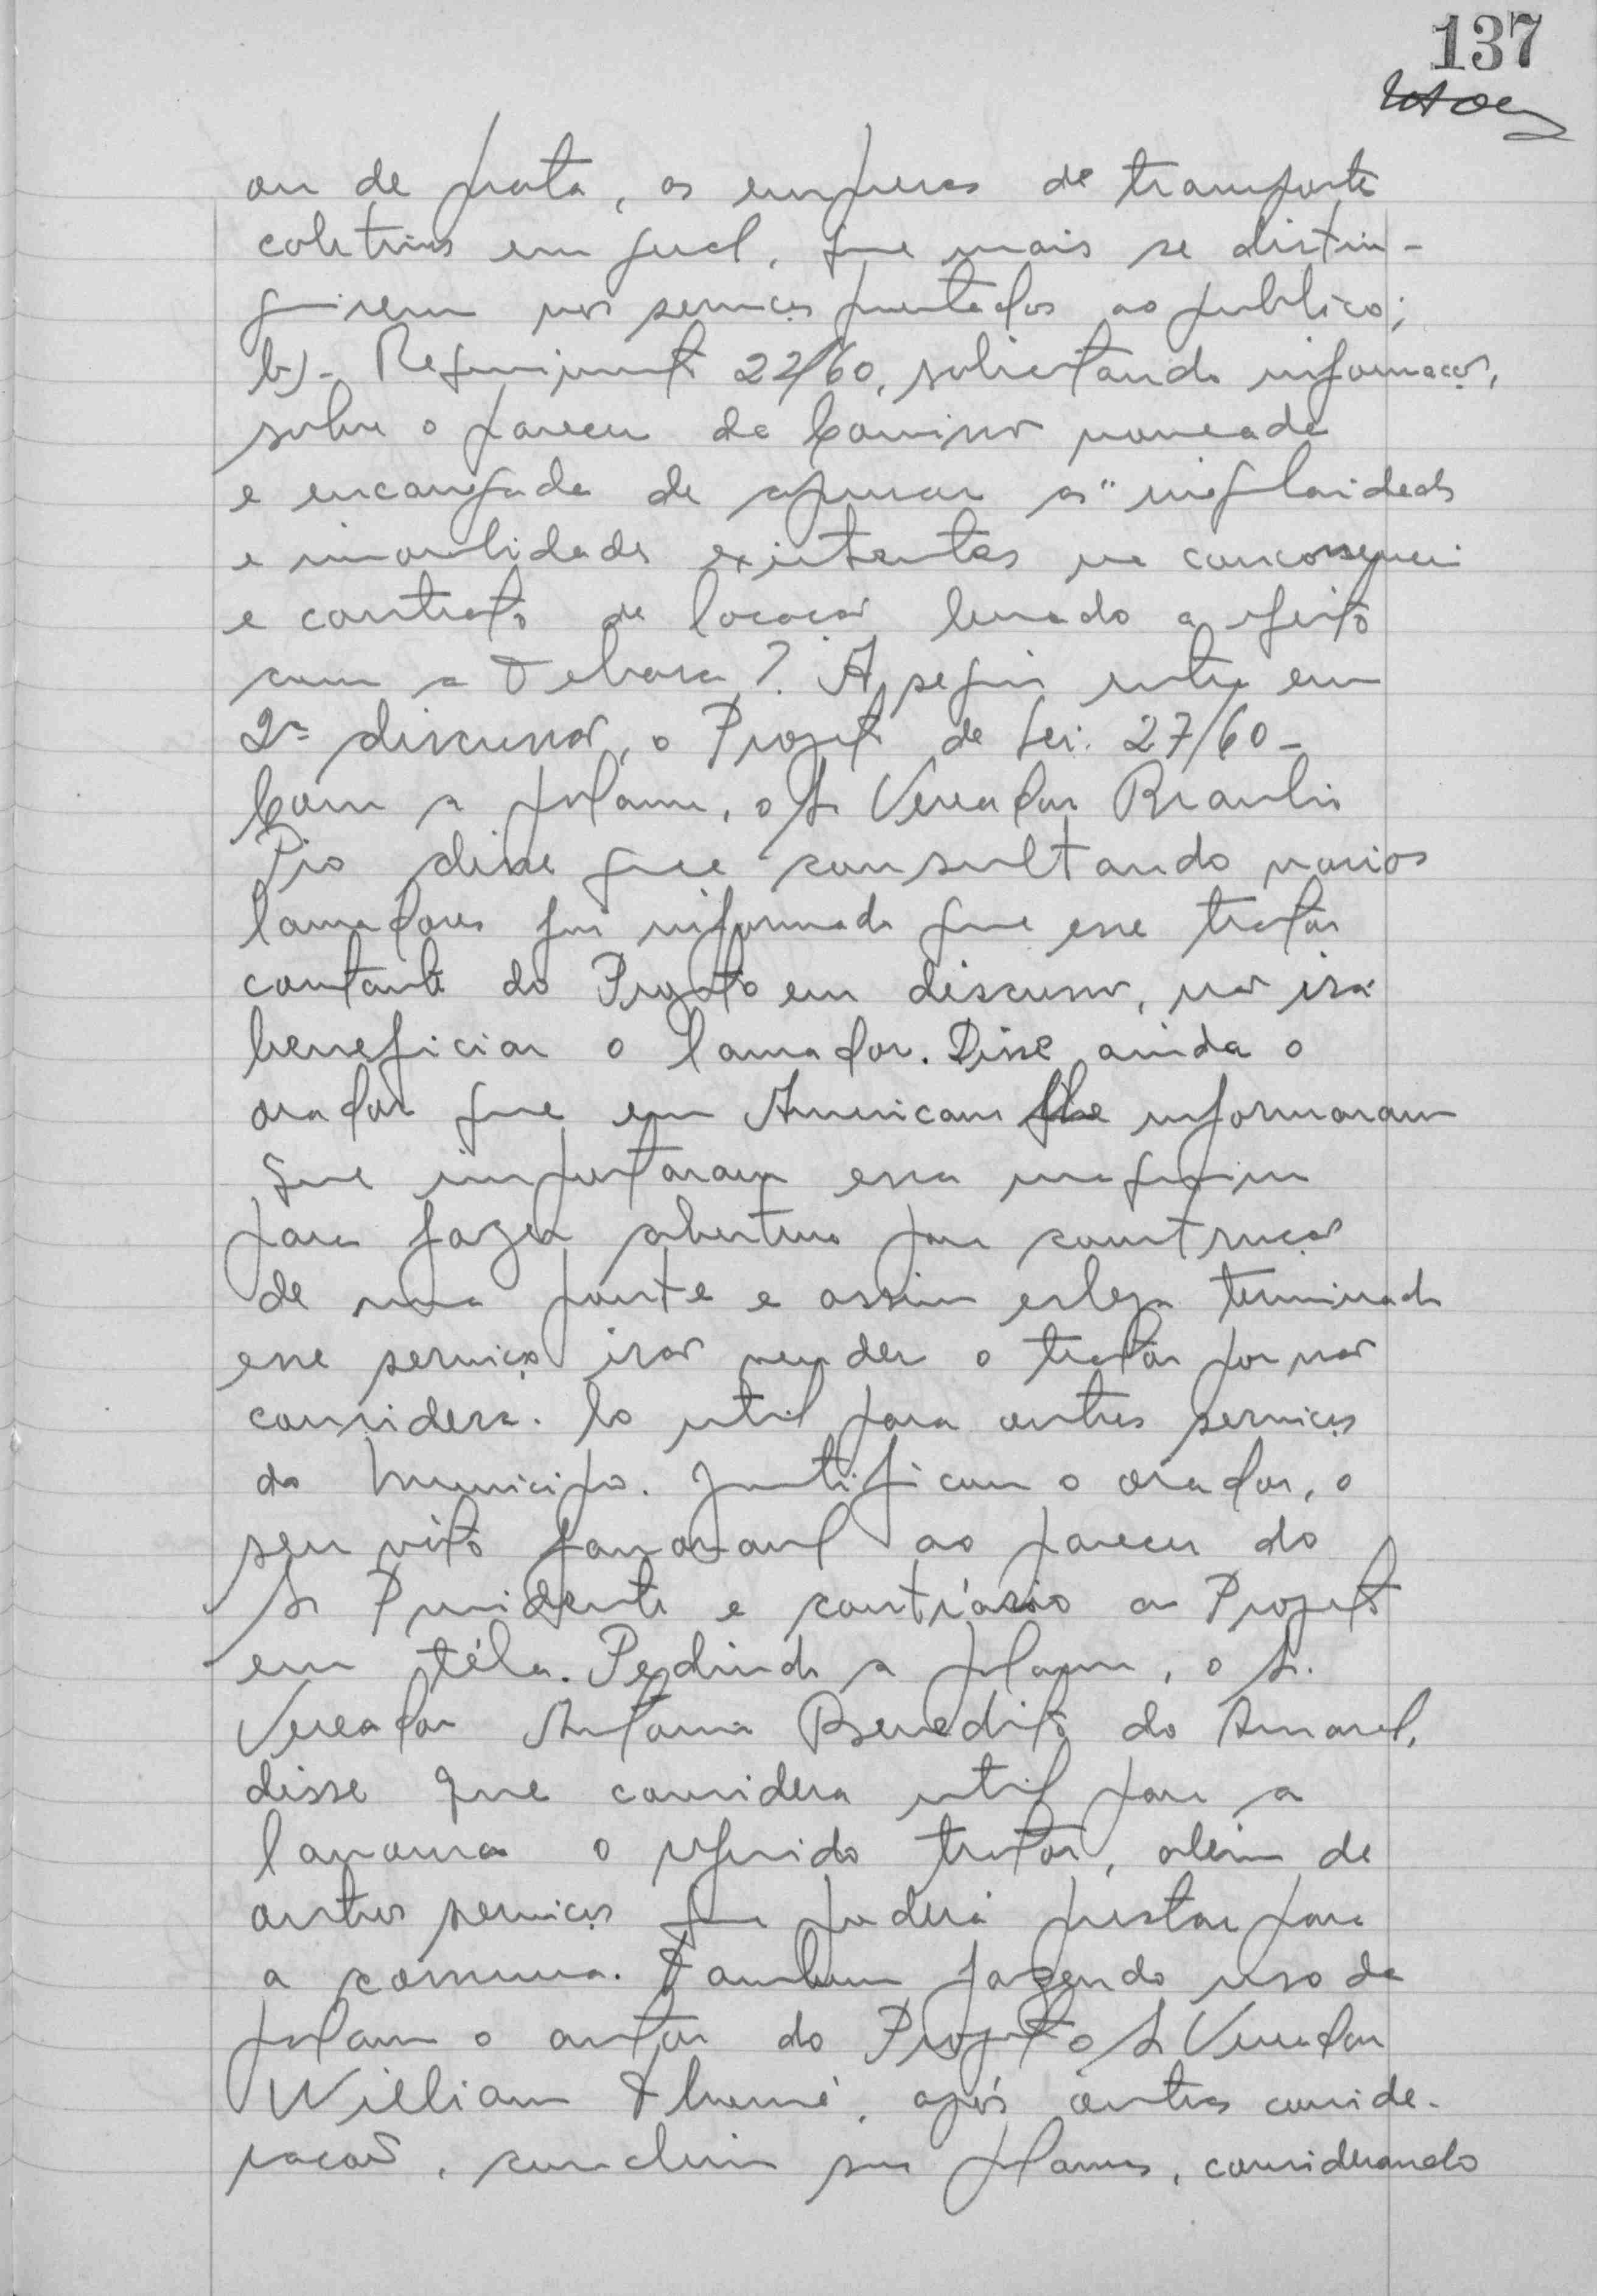 137
ou de prata, as empresas de transporte
coletivos em geral, que mais se distin-
guirem nos serviços prestados ao publico;
b)- Requerimento 22/60, solicitando informações,
sobre o parecer da Comissão nomeada
e encarregada de apurar as "irregularidades
e imoralidades existentes na concorrencia
e contrato de locação levado a efeito
com a
? A seguir entra em
2ª discussão, o Projeto de Lei: 27/60-
Com a palavra, o Sr Vereador Braulio
Pio disse que consultando varios
lavradores foi informado que esse trator
constante do Projeto em discussão, não irá
beneficiar o lavrador. Disse ainda o
orador que em Americana lhe informaram
que importaram essa maquina
para fazer abertura para construção
de uma ponte e assim esteja terminado
esse serviço irão vender o trator por não
considera-lo util para outros serviços
do Municipio. Justificou o orador, o
seu voto favoravel ao parecer do
Sr Presidente e contrário ao Projeto
em téla. Pedindo a palavra, o Sr.
Vereador Antonio Benedito do Amaral,
disse que considera util para a
lavoura o referido trator, além de
outros serviços que poderá prestar para
a comuna. Tambem fazendo uso da
palavra o autor do Projeto o Sr Vereador
William Thomé, após outras conside-
rações, concluiu sua palavra, considerando